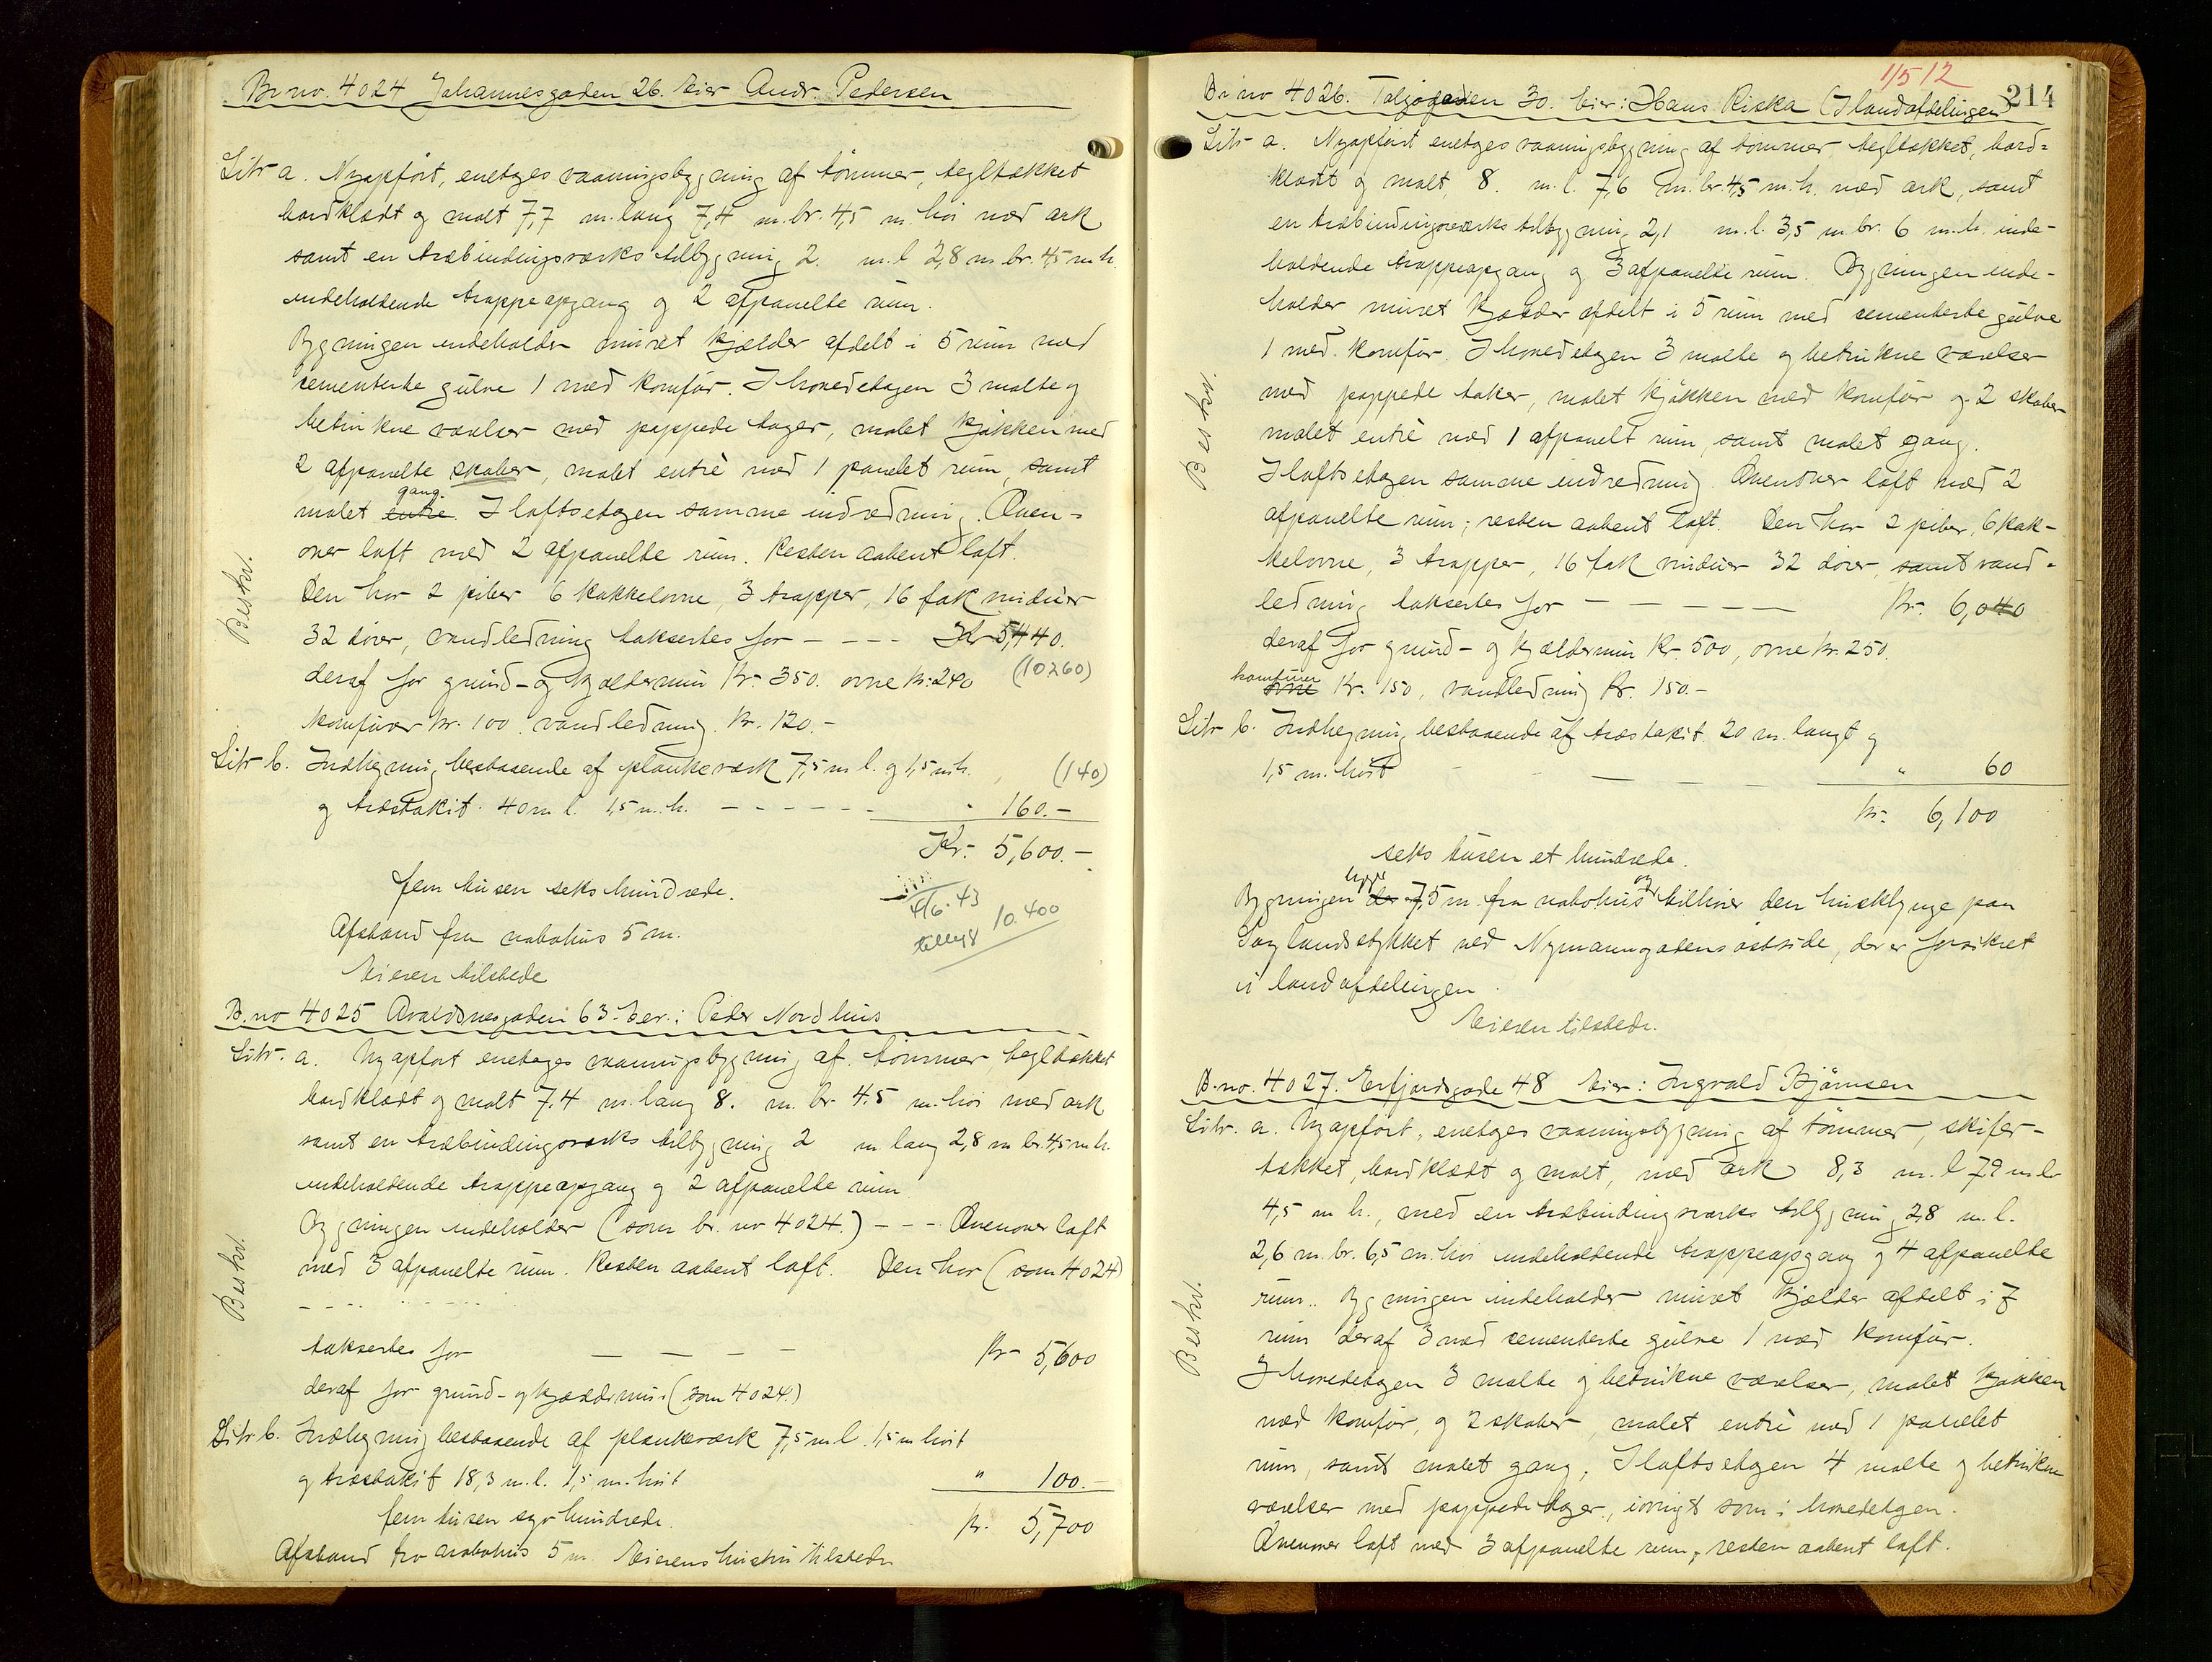 Br. no. 4024 Johannesgaden 26. Eier Andr. Pedersen
Litr a. Nyopført, enetages vaaningsbygning af tømmer, tegltækket
bordklædt og malt 7,7 m. lang 7,4 m. br. 4,5 m. høi med ark
samt en træbindingsværks tilbygning 2. m. l 2,8 m br. 4,5 m h.
indeholdende trappeopgang og 2 afpanelte rum.
Bygningen indeholder muret kjælder afdelt i 5 rum med
cementerte gulve 1 med komfur. I hovedetagen 3 malte og
betrukne værelser med pappede tager, malet kjøkken med
2 afpanelte skaber, malet entrè med 1 panelet rum, samt
malet entre gang. I loftsetagen samme indredning. Oven-
over loft med 2 afpanelte rum. Resten aabent loft.
Den har 2 piber 6 kakkelovne, 3 trapper, 16 fak vinduer
32 dører, vandledning taksertes for - - - - Kr 5,440.
deraf for grund- og kjældermur Kr. 350. ovne kr. 240 (10260)
komfurer kr. 100. vandledning. Kr. 120.-
Litr b. Indhegning bestaaende af plankeværk 7,5 m l. og 1,5 m h. (140)
og træstakit. 40 m l. 1,5 m. h. - - - - - - " 160.-
Kr. 5,600.-
fem tusen seks hundrede.
4/6. 43
tillegg 10.400
Afstand fra nabohus 5 m.
Eieren tilstede
Beskr.
B. no 4025 Avaldsnesgaden 63. Eier: Peder Nordhus
Litr. a. Nyopført enetages vaaningsbygning af tømmer, tegltækket
bordklædt og malt 7,4 m. lang 8. m. br. 4,5 m. høi med ark
samt en træbindingsværks tilbygning 2 m. lang 2,8 m br. 4,5 m h.
indeholdende trappeopgang og 2 afpanelte rum
Bygningen indeholder (som br. no 4024.) - - - Ovenover loft
med 3 afpanelte rum. Resten aabent loft. Den har (som 4024)
- - - -
taksertes for — — — — Kr 5,600
deraf for grund- og kjældermur (som 4024.)
Litr b. Indhegning bestaaende af plankeværk 7,5 m l. 1,5 m høit
og træstakit 18,3 m. l. 1,5 m. høit " 100.-
fem tusen syv hundrede. Kr. 5,700
Afstand fra nabohus 5 m. Eierens hustru tilstede
Beskr.
1/5 12
214
Br no 4026. Taljegaden 30. Eier: Hans Riska (I landafdelingen
Litr a. Nyopført enetages vaaningsbygning af tømmer, tegltækket, bord-
klædt og malt, 8. m. l. 7,6 m. br. 4,5 m. h. med ark, samt
en træbindingsværks tilbygning 2,1 m. l. 3,5 m br. 6 m. h. inde-
holdende trappeopgang og 3 afpanelte rum. Bygningen inde-
holder muret kjælder afdelt i 5 rum med cementerte gulve
1 med komfur. I hovedetagen 3 malte og betrukne værelser
med pappede taker, malet kjøkken med komfur og 2 skaber
malet entrè med 1 afpanelt rum, samt malet gang.
I loftsetagen samme indredning. Ovenover loft med 2
afpanelte rum; resten aabent loft. Den har 2 piber, 6 kak-
kelovne, 3 trapper, 16 fak vinduer 32 dører, samt vand-
ledning taksertes for — — — — — Kr. 6,040
deraf for grund- og kjældermur Kr. 500, ovne kr. 250.
ovne komfurer Kr. 150, vandledning Kr. 150.-
Litr b. Indhegning bestaaende af træstakit. 20 m. langt og
1,5 m. høit — — — " 60
Kr. 6,100
seks tusen et hundrede.
Bygningen ligger 7,5 m. fra nabohus og tilhører den husklynge paa
landstykket ved Nymannsgadens østside, der er forsikret
i landafdelingen
Eieren tilstede.
Beskr.
B. no. 4027. Erfjordsgade 48 Eier: Ingvald Bjørnsen
Litr. a. Nyopført, enetages vaaningsbygning af tømmer, skifer-
tækket, bordklædt og malt, med ark 8,3 m. l 7,9 m br
4,5 m h., med en træbindingsværks tilbygning 2,8 m. l.
2,6 m. br. 6,5 m. høi indeholdende trappeopgang og 4 afpanelte
rum.. Bygningen indeholder muret kjælder afdelt i 7
rum deraf 3 med cementerte gulve 1 med komfur.
I hovedetagen 3 malte og betrukne værelser, malet kjøkken
med komfur, og 2 skaber, malet entrè med 1 panelet
rum, samt malet gang, I loftsetagen 4 malte og betrukne
værelser med pappede tager, iøvrigt som i hovedetagen.
Ovenover loft med 3 afpanelte rum, resten aabent loft.
Beskr.